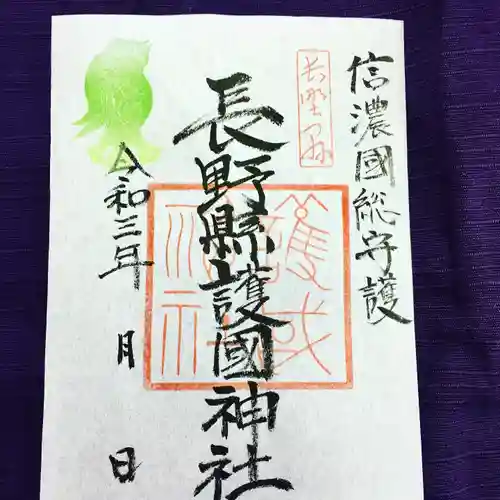 信濃國総守護
長野縣
長野縣護國神社
令和三年 月 日